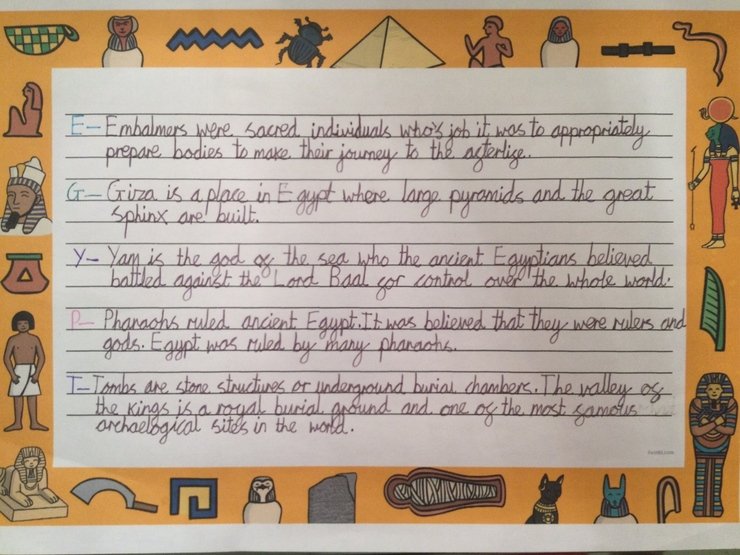 E- Embalmers were sacred individuals who's job it was to appropriately
prepare bodies to make their journey to the afterlife.
G- Giza is a place in Egypt where large pyramids and the great
sphinx are built.
Y- Yam is the god of the sea who the ancient Egyptians believed
battled against the Lord Baal for control over the whole world.
P- Pharaohs ruled ancient Egypt. It was believed that they were rulers and
gods. Egypt was ruled by many pharaohs.
T- Tombs are stone structures or underground burial chambers. The valley of
the kings is a royal burial ground and one of the most famous
archaelogical sites in the world.
twinkl.com